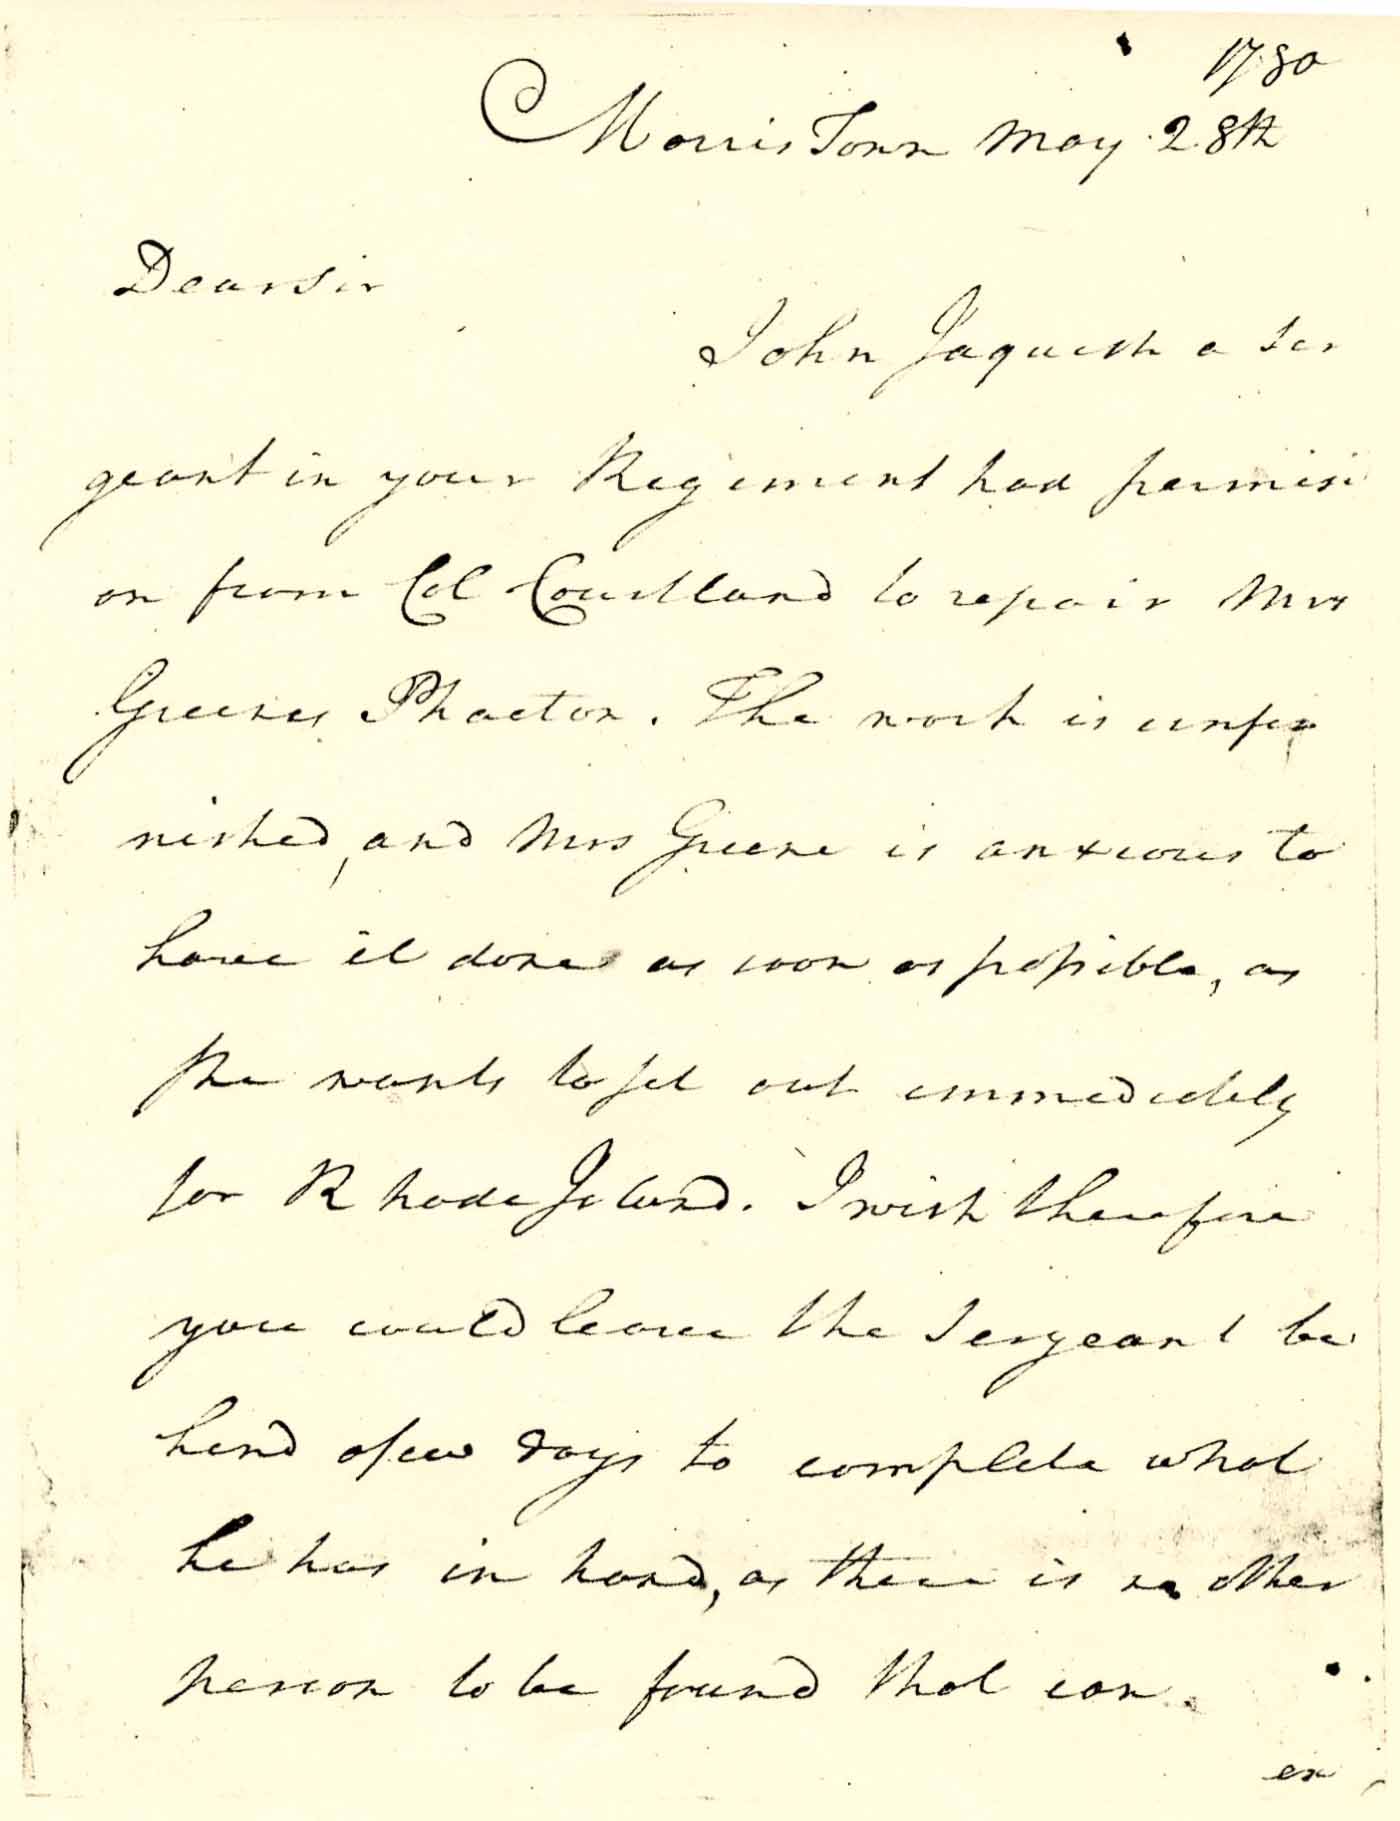 1780
Morris Town May 28th
Dear Sir
John Jaquish a Ser
geant in your Regiment had permisi
on from Col Courtland to repair Mrs
Greenes Phaeton. The work is unfin
nished, and Mrs Greene is anxious to
have it done as soon as possible, as
she wants to set out immediately
for Rhode Island. I wish therefore
you could leave the Sergeant be
hind a few days to complete what
he has in hand, as there is no other
person to be found that can
ex